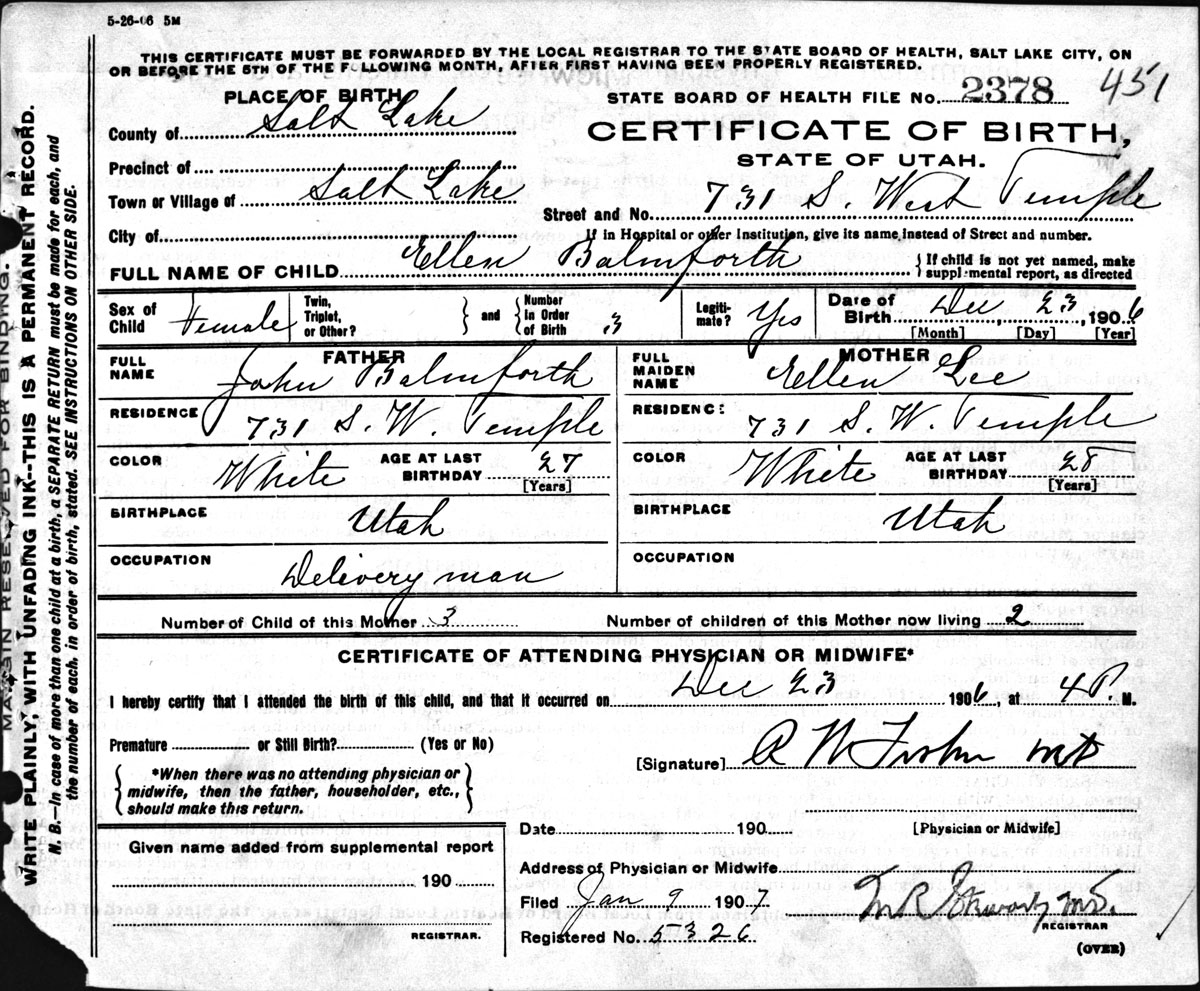 5-26-06 5M
THIS CERTIFICATE MUST BE FORWARDED BY THE LOCAL REGISTRAR TO THE STATE BOARD OF HEALTH, SALT LAKE CITY, ON
OR BEFORE THE 5TH OF THE FOLLOWING MONTH, AFTER FIRST HAVING BEEN PROPERLY REGISTERED.
PLACE OF BIRTH
STATE BOARD OF HEALTH FILE No. 2378 451
County of Salt Lake
CERTIFICATE OF BIRTH,
STATE OF UTAH.
Precinct of
Town or Village of Salt Lake
Street and No. 731 S. West Temple
City of
If in Hospital or other Institution, give its name instead of Street and number.
FULL NAME OF CHILD Ellen Balmforth
{If child is not yet named, make
supplemental report, as directed
Sex of Child Female
Twin, Triplet, or Other? } and { Number in Order of Birth 3
Legiti-mate? Yes
Date of Birth Dec 23, 1906
[Month] [Day] [Year]
FATHER
FULL NAME John Balmforth
RESIDENCE 731 S. W. Temple
COLOR White AGE AT LAST BIRTHDAY 27
[Years]
BIRTHPLACE Utah
OCCUPATION Delivery man
MOTHER
FULL MAIDEN NAME Ellen Lee
RESIDENCE 731 S. W. Temple
COLOR White AGE AT LAST BIRTHDAY 28
[Years]
BIRTHPLACE Utah
OCCUPATION
Number of Child of this Mother 3 Number of children of this Mother now living 2
CERTIFICATE OF ATTENDING PHYSICIAN OR MIDWIFE*
I hereby certify that I attended the birth of this child, and that it occurred on Dec 23 1906, at 4 P. M.
Premature or Still Birth? (Yes or No)
[Signature]
*When there was no attending physician or
midwife, then the father, householder, etc.,
should make this return.
[Physician or Midwife]
Given name added from supplemental report
190
REGISTRAR.
Date 190
Address of Physician or Midwife
Filed Jan 9 1907
REGISTRAR
Registered No. 5326
(OVER)
MARGIN RESERVED FOR BINDING.
WRITE PLAINLY, WITH UNFADING INK--THIS IS A PERMANENT RECORD.
N. B.—In case of more than one child at a birth, a SEPARATE RETURN must be made for each, and
the number of each, in order of birth, stated. SEE INSTRUCTIONS ON OTHER SIDE.